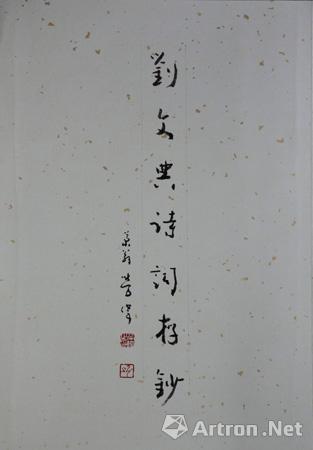 劉文典詩詞存鈔
Artron.Net